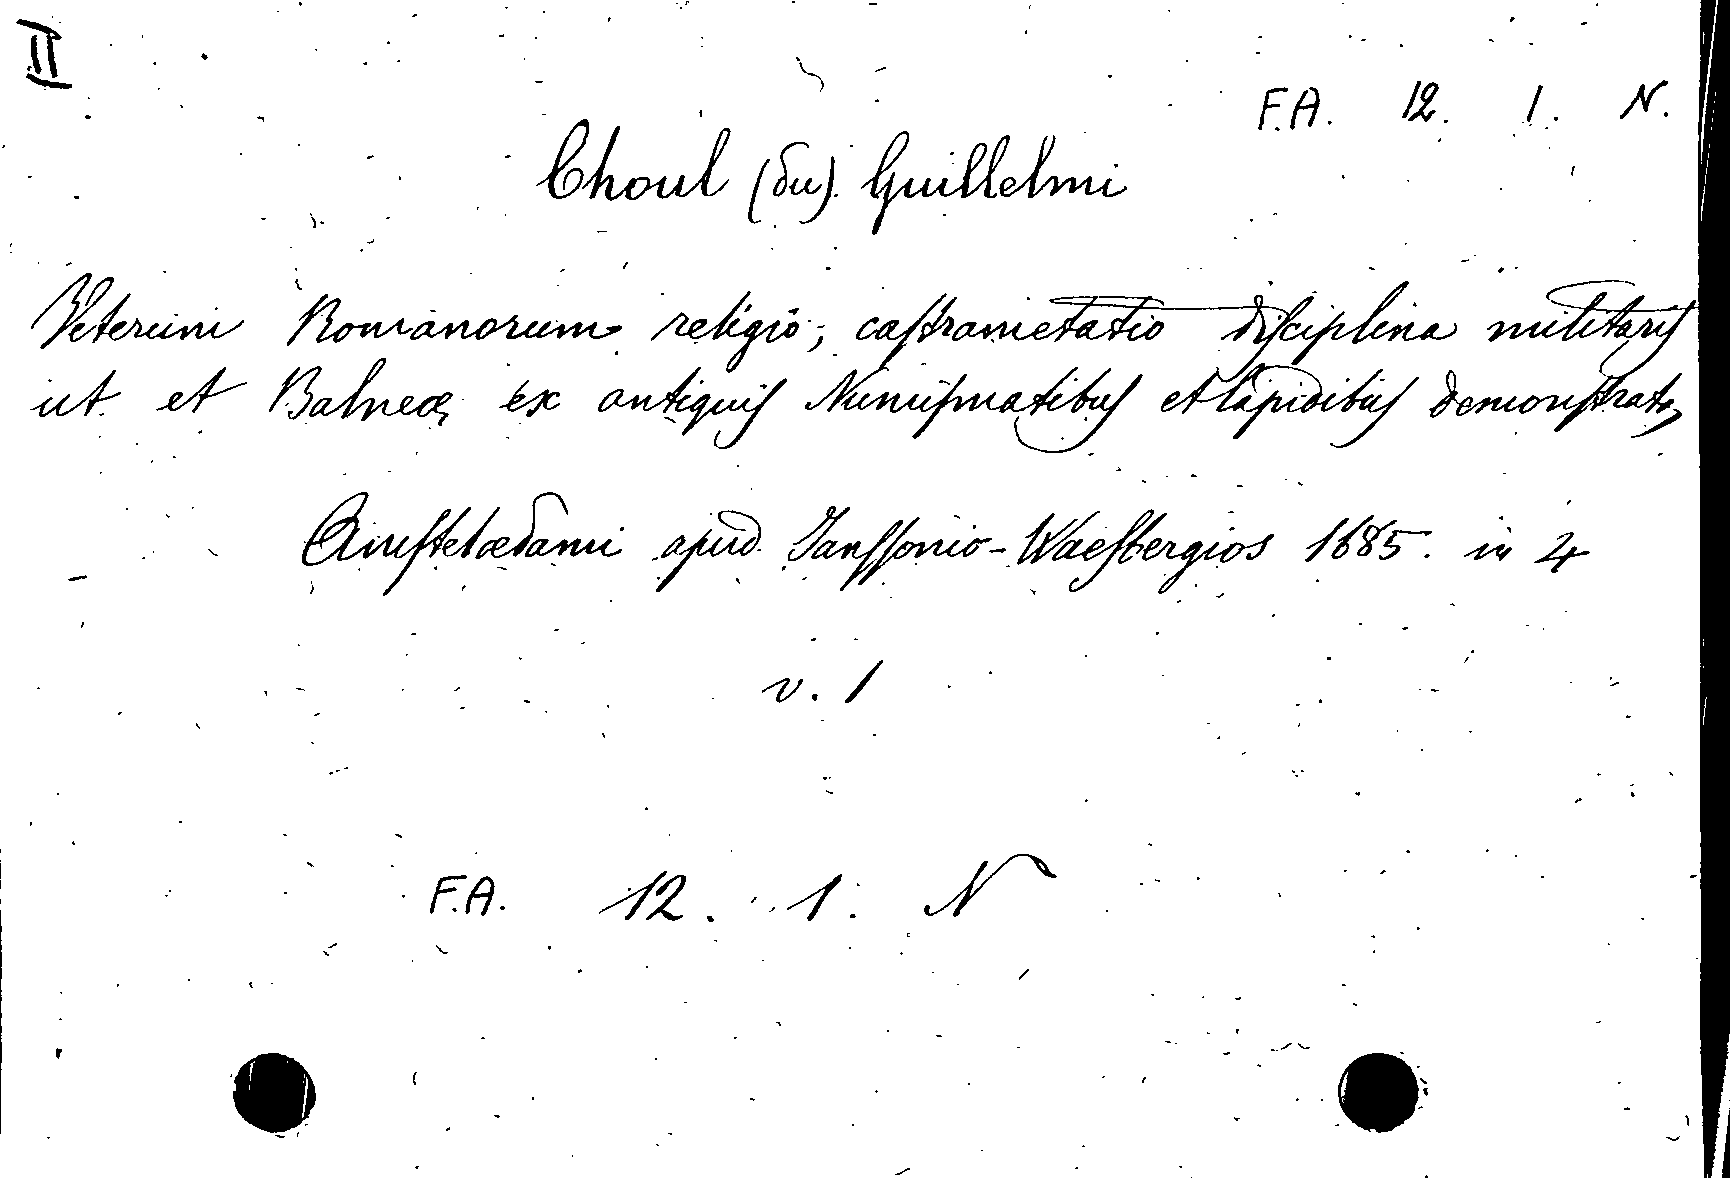 II
F.A. 12. 1. N.
Choul (du) Guillelmi
Veterum Romanorum religio, castrametatio disciplina militaris
ut et Balneæ ex antiquis Numismatibus et lapidibus demonstrata
Amstelædami apud Janssonio-Waesbergios 1685. in 4
v. 1
F.A. 12. 1. N